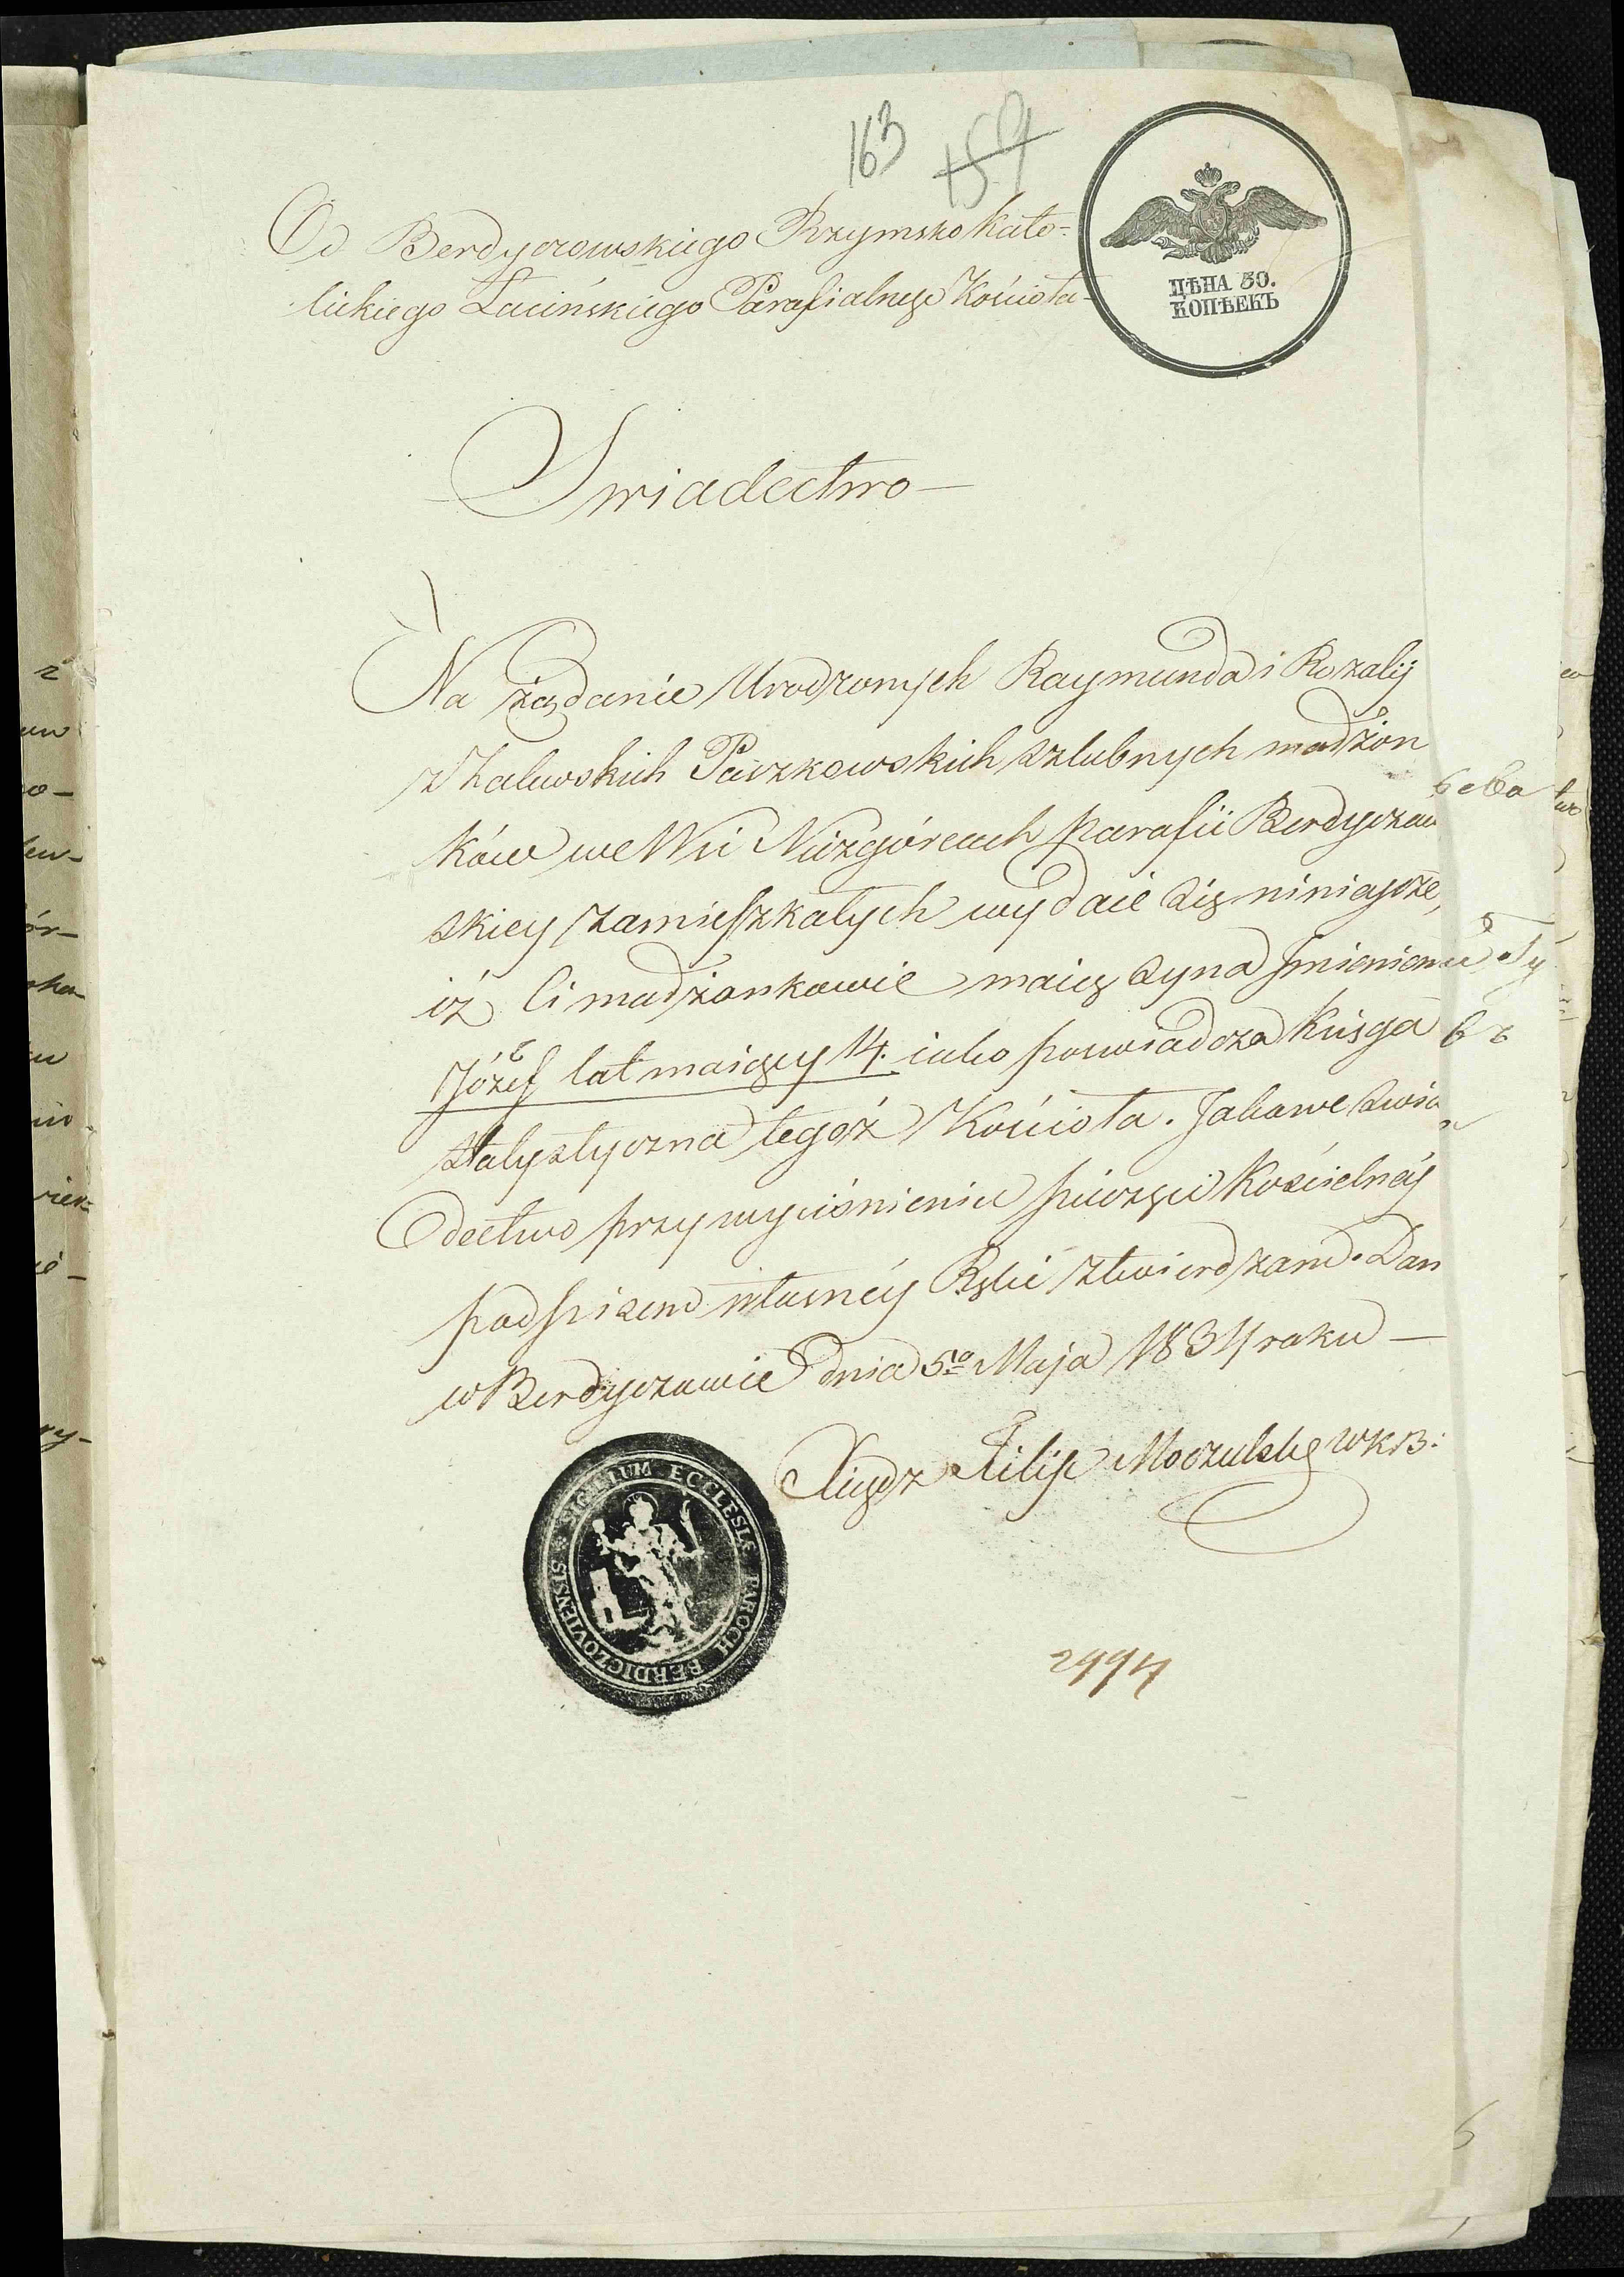 163 159
Od Berdyczowskiego Rzymsko Kato-
lickiego Łacińskiego Parafialnego Kościoła-
ЦѢНА 50.
КОПѢЕКЪ
Swiadectwo
Na żądanie Urodzonych Raymunda i Rozalij
z Zalewskich Paszkowskich szlubnych madżon
ków we Wsi Niżgórcach parafii Berdyczow
skiey zamieszkałych wydaie się ninieysze,
iż Ci madżonkowie maią syna Jmieniem
Józef lat maiący 14. iako poswiadcza Księga
statystyczna tegoż Kościoła. Jakowe swia
dectwo przy wyciśnieniu pieczęci Kościelnéy
podpisem własnéy Ręki ztwierdzam. Dan
w Berdyczowie dnia 5go Maja 1834 roku
Xiądz Filip Moczulski WKB:
SIGILLUM ECCLESIÆ PAROCH BERDICZOVIENSIS
2994